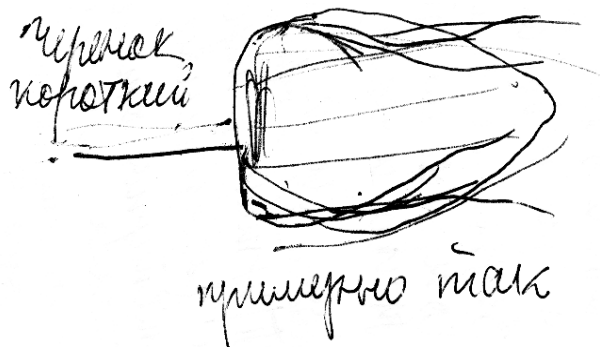 Черенок
короткий
примерно так